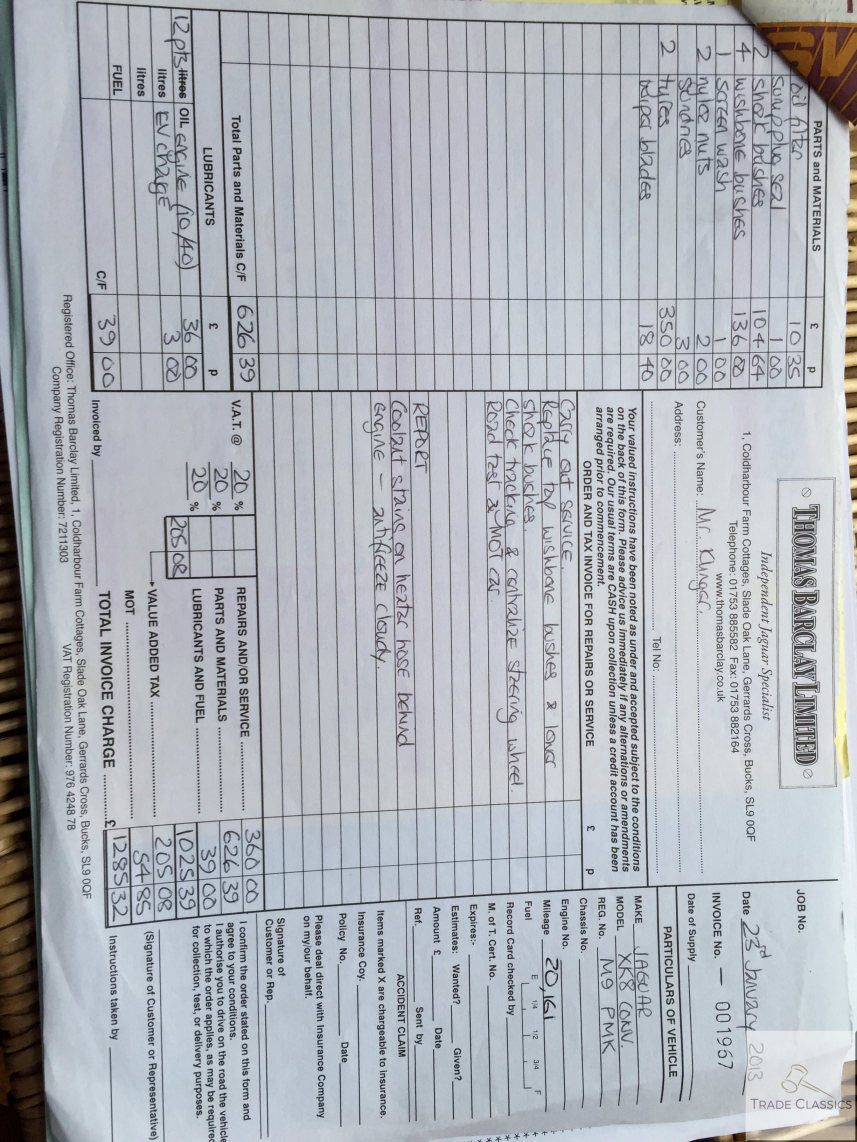 PARTS and MATERIALS £ p
oil filter 10 35
sump plug seal 1 00
2 shock bushes 104 64
4 wishbone bushes 136 00
1 screen wash 1 00
2 nyloc nuts 2 00
sundries 3 00
2 tyres 350 00
wiper blades 18 40
Total Parts and Materials C/F 626 39
LUBRICANTS £ p
12 pts litres OIL engine (10/40) 36 00
litres EV charge 3 00
litres
FUEL
C/F 39 00
THOMAS BARCLAY LIMITED
Independent Jaguar Specialist
1, Coldharbour Farm Cottages, Slade Oak Lane, Gerrards Cross, Bucks, SL9 0QF
Telephone: 01753 885582 Fax: 01753 882164
www.thomasbarclay.co.uk
Customer's Name: Mr. Klinger.
Address:
Tel No:
Your valued instructions have been noted as under and accepted subject to the conditions
on the back of this form. Please advice us immediately if any alternations or amendments
are required. Our usual terms are CASH upon collection unless a credit account has been
arranged prior to commencement.
ORDER AND TAX INVOICE FOR REPAIRS OR SERVICE £ p
Carry out service
Replace top wishbone bushes & lower
shock bushes.
Check tracking & centralize steering wheel.
Road test & MOT car
REPORT
Coolant stains on heater hose behind
engine - antifreeze cloudy.
V.A.T. @ 20 % REPAIRS AND/OR SERVICE 360 00
20 % PARTS AND MATERIALS 626 39
20 % LUBRICANTS AND FUEL 39 00
1025 39
205 08 VALUE ADDED TAX 205 08
MOT 54 85
Invoiced by TOTAL INVOICE CHARGE £ 1285 32
JOB No.
Date 23rd January 2013
INVOICE No. - 001967
Date of Supply
PARTICULARS OF VEHICLE
MAKE JAGUAR
MODEL XK8 CONV.
REG. No. M9 PMK
Chassis No.
Engine No.
Mileage 20,161
Fuel E 1/4 1/2 3/4 F
Record Card checked by
M. of T. Cert. No.
Expires:-
Estimates: Wanted? Given?
Amount £ Date
Ref. Sent by
ACCIDENT CLAIM
Items marked X are chargeable to Insurance.
Insurance Coy.
Policy No. Date
Please deal direct with Insurance Company
on my/our behalf.
Signature of
Customer or Rep.
I confirm the order stated on this form and
agree to your conditions.
I authorise you to drive on the road the vehicle
to which the order applies, as may be required
for collection, test, or delivery purposes.
(Signature of Customer or Representative)
Instructions taken by
Registered Office: Thomas Barclay Limited, 1, Coldharbour Farm Cottages, Slade Oak Lane, Gerrards Cross, Bucks, SL9 0QF
Company Registration Number: 7211303 VAT Registration Number: 976 4248 78
TRADE CLASSICS